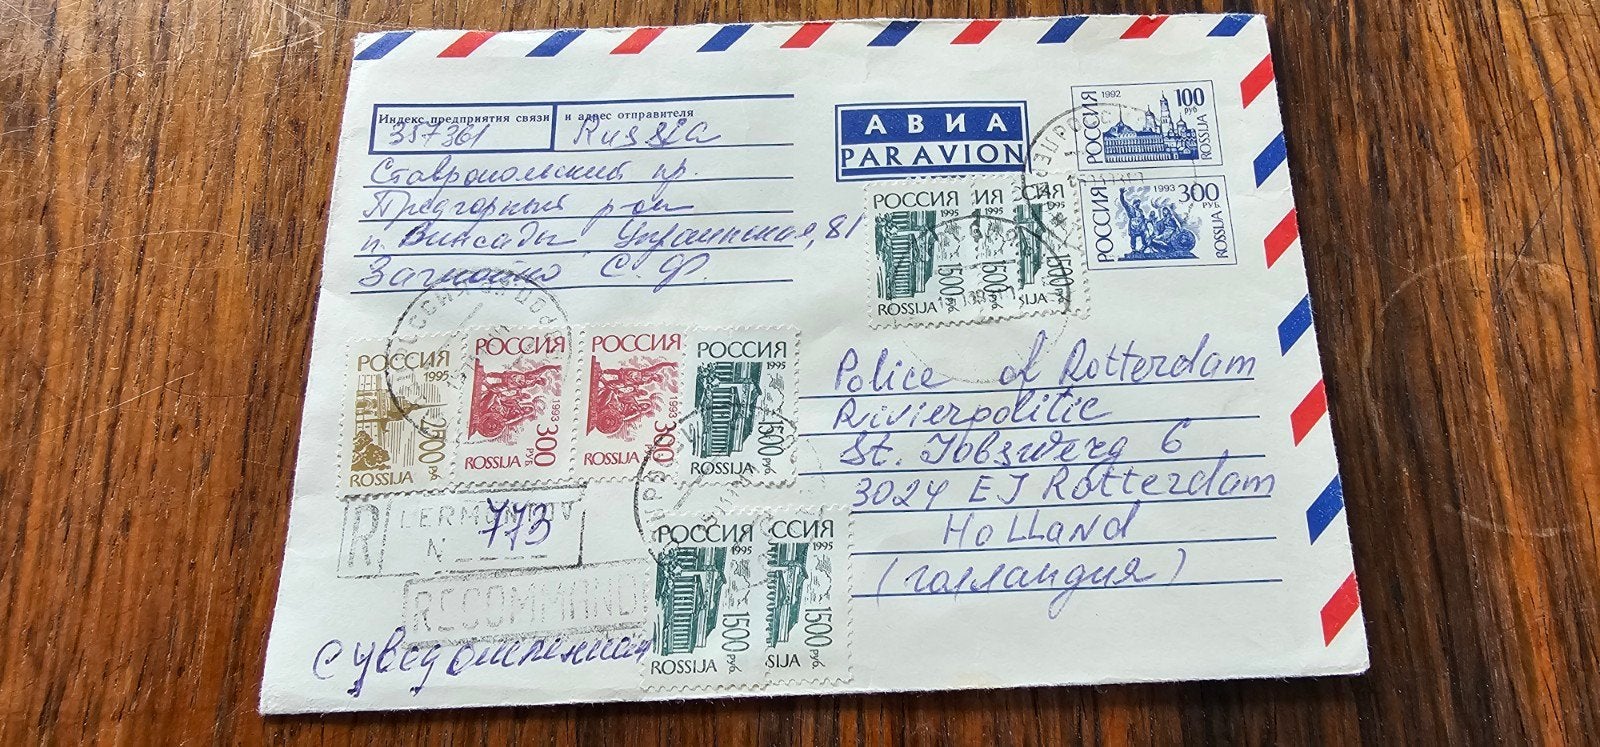 Индекс предприятия связи и адрес отправителя
357361 Russia
Ставропольский пр.
Предгорный р-он
п. Винсады Украинская, 81
С. Ф.
АВИА
PARAVION
РОССИЯ 1992 100 руб ROSSIJA
РОССИЯ 1993 300 РУБ. ROSSIJA
РОССИЯ 1995 1500 руб ROSSIJA
ИЯ 1995 1500 руб
ССИЯ 1995 1500 руб SIJA
РОССИЯ 1995 2500 руб ROSSIJA
РОССИЯ 1993 300 РУБ ROSSIJA
РОССИЯ 1993 300 РУБ ROSSIJA
РОССИЯ 1995 1500 руб ROSSIJA
Police of Rotterdam
Rivierpolitic
St. Jobsweg 6
3024 EJ Rotterdam
HoLLand
(Голландия)
R LERMONTOV
N 773
RECOMMAND
РОССИЯ 1995 1500 руб ROSSIJA
ССИЯ 1995 1500 руб SIJA
с уведомлением